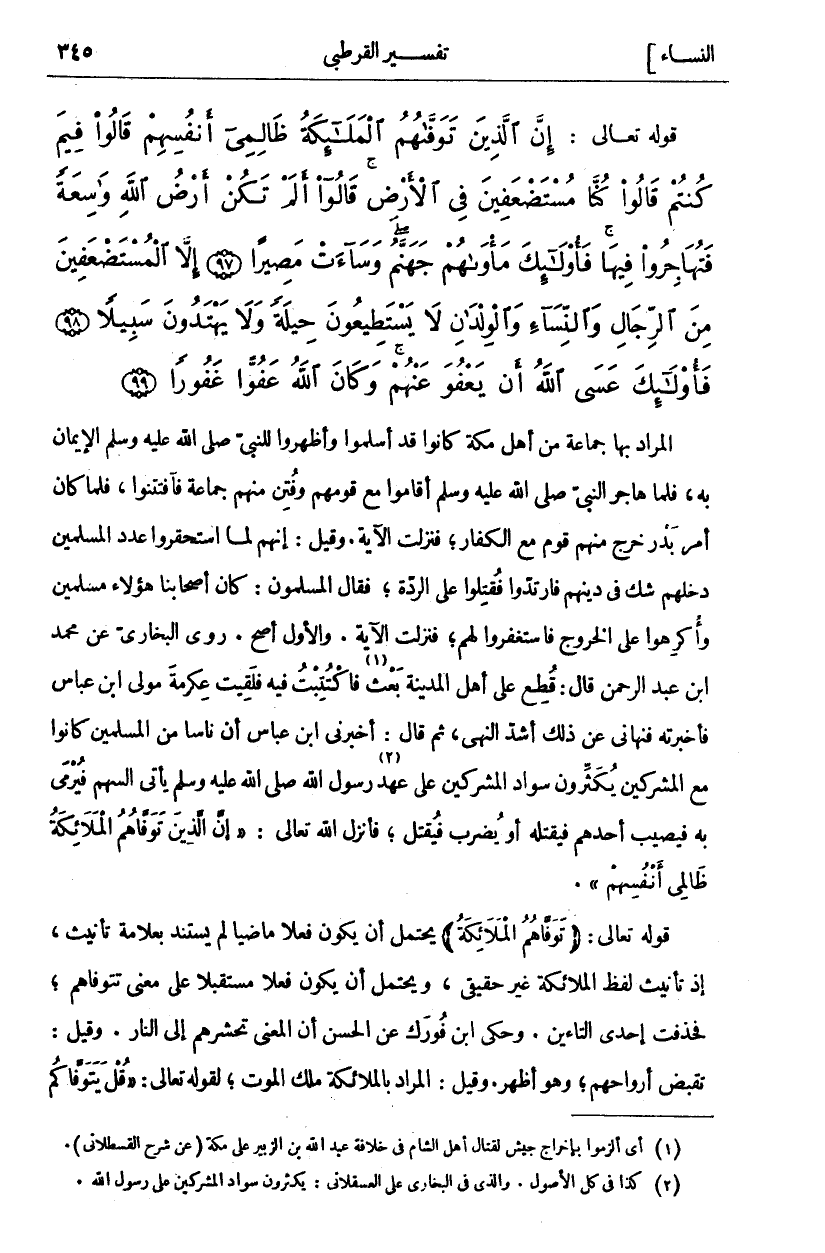 النساء ] تفسير القرطبي ٣٤٥
قوله تعالى : إِنَّ ٱلَّذِينَ تَوَفَّىٰهُمُ ٱلْمَلَـٰٓئِكَةُ ظَالِمِىٓ أَنفُسِهِمْ قَالُوا۟ فِيمَ
كُنتُمْ قَالُوا۟ كُنَّا مُسْتَضْعَفِينَ فِى ٱلْأَرْضِ ۚ قَالُوٓا۟ أَلَمْ تَكُنْ أَرْضُ ٱللَّهِ وَٰسِعَةً
فَتُهَاجِرُوا۟ فِيهَا ۚ فَأُو۟لَـٰٓئِكَ مَأْوَىٰهُمْ جَهَنَّمُ ۖ وَسَآءَتْ مَصِيرًا ﴿٩٧﴾ إِلَّا ٱلْمُسْتَضْعَفِينَ
مِنَ ٱلرِّجَالِ وَٱلنِّسَآءِ وَٱلْوِلْدَٰنِ لَا يَسْتَطِيعُونَ حِيلَةً وَلَا يَهْتَدُونَ سَبِيلًا ﴿٩٨﴾
فَأُو۟لَـٰٓئِكَ عَسَى ٱللَّهُ أَن يَعْفُوَ عَنْهُمْ ۚ وَكَانَ ٱللَّهُ عَفُوًّا غَفُورًا ﴿٩٩﴾
المراد بها جماعة من أهل مكة كانوا قد أسلموا وأظهروا للنبىّ صلى الله عليه وسلم الإيمان
به ، فلما هاجر النبىّ صلى الله عليه وسلم أقاموا مع قومهم وفُتِن منهم جماعة فٱفتتنوا ، فلما كان
أمر بَدْر خرج منهم قوم مع الكفار ؛ فنزلت الآية . وقيل : إنهم لمــا استحقروا عدد المسلمين
دخلهم شك فى دينهم فارتدّوا فقُتِلوا على الردّة ؛ فقال المسلمون : كان أصحابنا هؤلاء مسلمين
وأُكرِهوا على الخروج فاستغفروا لهم ؛ فنزلت الآية . والأول أصح . روى البخارىّ عن محمد
ابن عبد الرحمن قال : قُطِع على أهل المدينة بَعْث (١) فاكْتُتِبْتُ فيه فلَقِيت عِكرمةَ مولى ابن عباس
فأخبرته فنهانى عن ذلك أشدّ النهى ، ثم قال : أخبرنى ابن عباس أن ناسا من المسلمين كانوا
مع المشركين يُكَثِّرون سواد المشركين على عهد (٢) رسول الله صلى الله عليه وسلم يأتى السهم فيُرْمَى
به فيصيب أحدهم فيقتله أو يُضرب فيُقتل ؛ فأنزل الله تعالى : « إِنَّ الَّذِينَ تَوَفَّاهُمُ الْمَلَائِكَةُ
ظَالِمِى أَنْفُسِهِمْ » .
قوله تعالى : ﴿ تَوَفَّاهُمُ الْمَلَائِكَةُ ﴾ يحتمل أن يكون فعلا ماضيا لم يستند بعلامة تأنيث ،
إذ تأنيث لفظ الملائكة غير حقيقى ، ويحتمل أن يكون فعلا مستقبلا على معنى تتوفاهم ؛
فحذفت إحدى التاءين . وحكى ابن فُورَك عن الحسن أن المعنى تحشرهم إلى النار . وقيل :
تقبض أرواحهم ؛ وهو أظهر . وقيل : المراد بالملائكة ملك الموت ؛ لقوله تعالى : «قُلْ يَتَوَفَّاكُمْ
(١) أى ألزموا بإخراج جيش لقتال أهل الشام فى خلافة عبد الله بن الزبير على مكة (عن شرح القسطلانى) .
(٢) كذا فى كل الأصول . والذى فى البخارى على العسقلانى : يكثرون سواد المشركين على رسول الله .